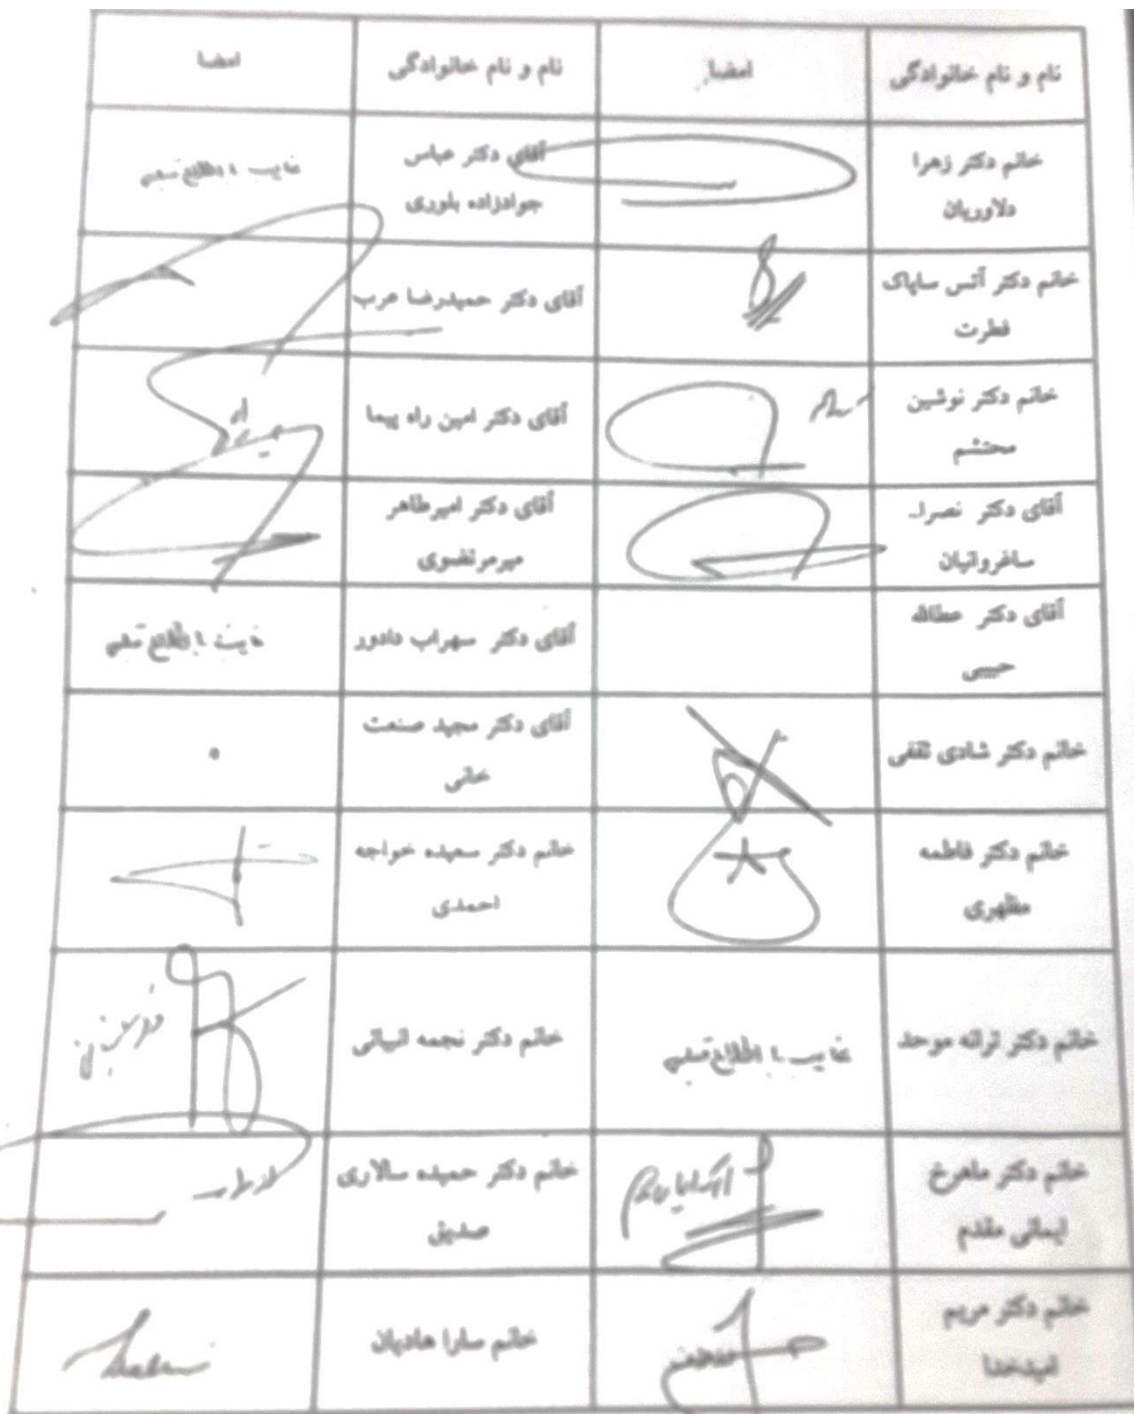 نام و نام خانوادگی
امضا
نام و نام خانوادگی
امضا
خانم دکتر زهرا
دلاوریان
آقای دکتر عباس
جوادزاده بلوری
غایب با اطلاع قبلی
خانم دکتر آتس ساپاک
فطرت
آقای دکتر حمیدرضا عرب
خانم دکتر نوشین
محتشم
آقای دکتر امین راه پیما
آقای دکتر نصرا..
ساغروانیان
آقای دکتر امیرطاهر
میرمرتضوی
آقای دکتر عطااله
حبیبی
آقای دکتر سهراب دادور
غایب با اطلاع قبلی
خانم دکتر شادی ثقفی
آقای دکتر مجید صنعت
خانی
خانم دکتر فاطمه
مظهری
خانم دکتر سعیده خواجه
احمدی
خانم دکتر ترانه موحد
غایب با اطلاع قبلی
خانم دکتر نجمه انبیائی
خانم دکتر ماهرخ
ایمانی مقدم
خانم دکتر حمیده سالاری
صدیق
خانم دکتر مریم
امیدخدا
خانم سارا هادیان